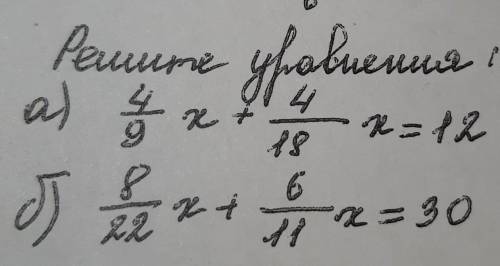 Решите уравнения:
а) 4/9 x + 4/18 x = 12
б) 8/22 x + 6/11 x = 30